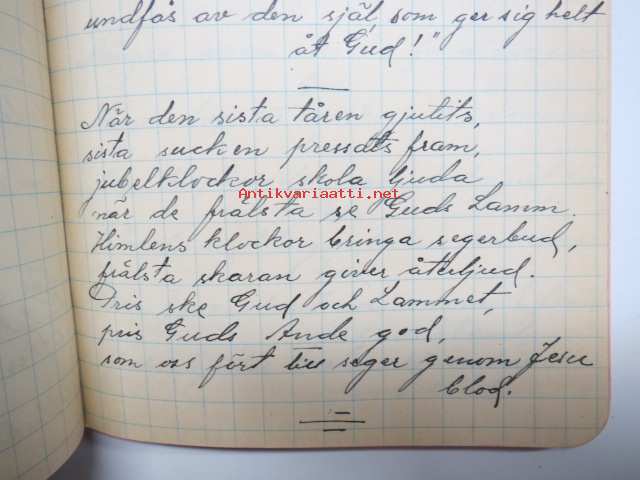 undfås av den själ, som ger sig helt
åt Gud!"
När den sista tåren gjutits,
sista sucken pressats fram,
jubelklockor skola ljuda
Antikvariaatti.net
när de frälsta se Guds Lamm.
Himlens klockor bringa segerbud,
frälsta skaran giver återljud.
Pris ske Gud och Lammet,
pris Guds Ande god,
som oss fört till seger genom Jesu
blod.